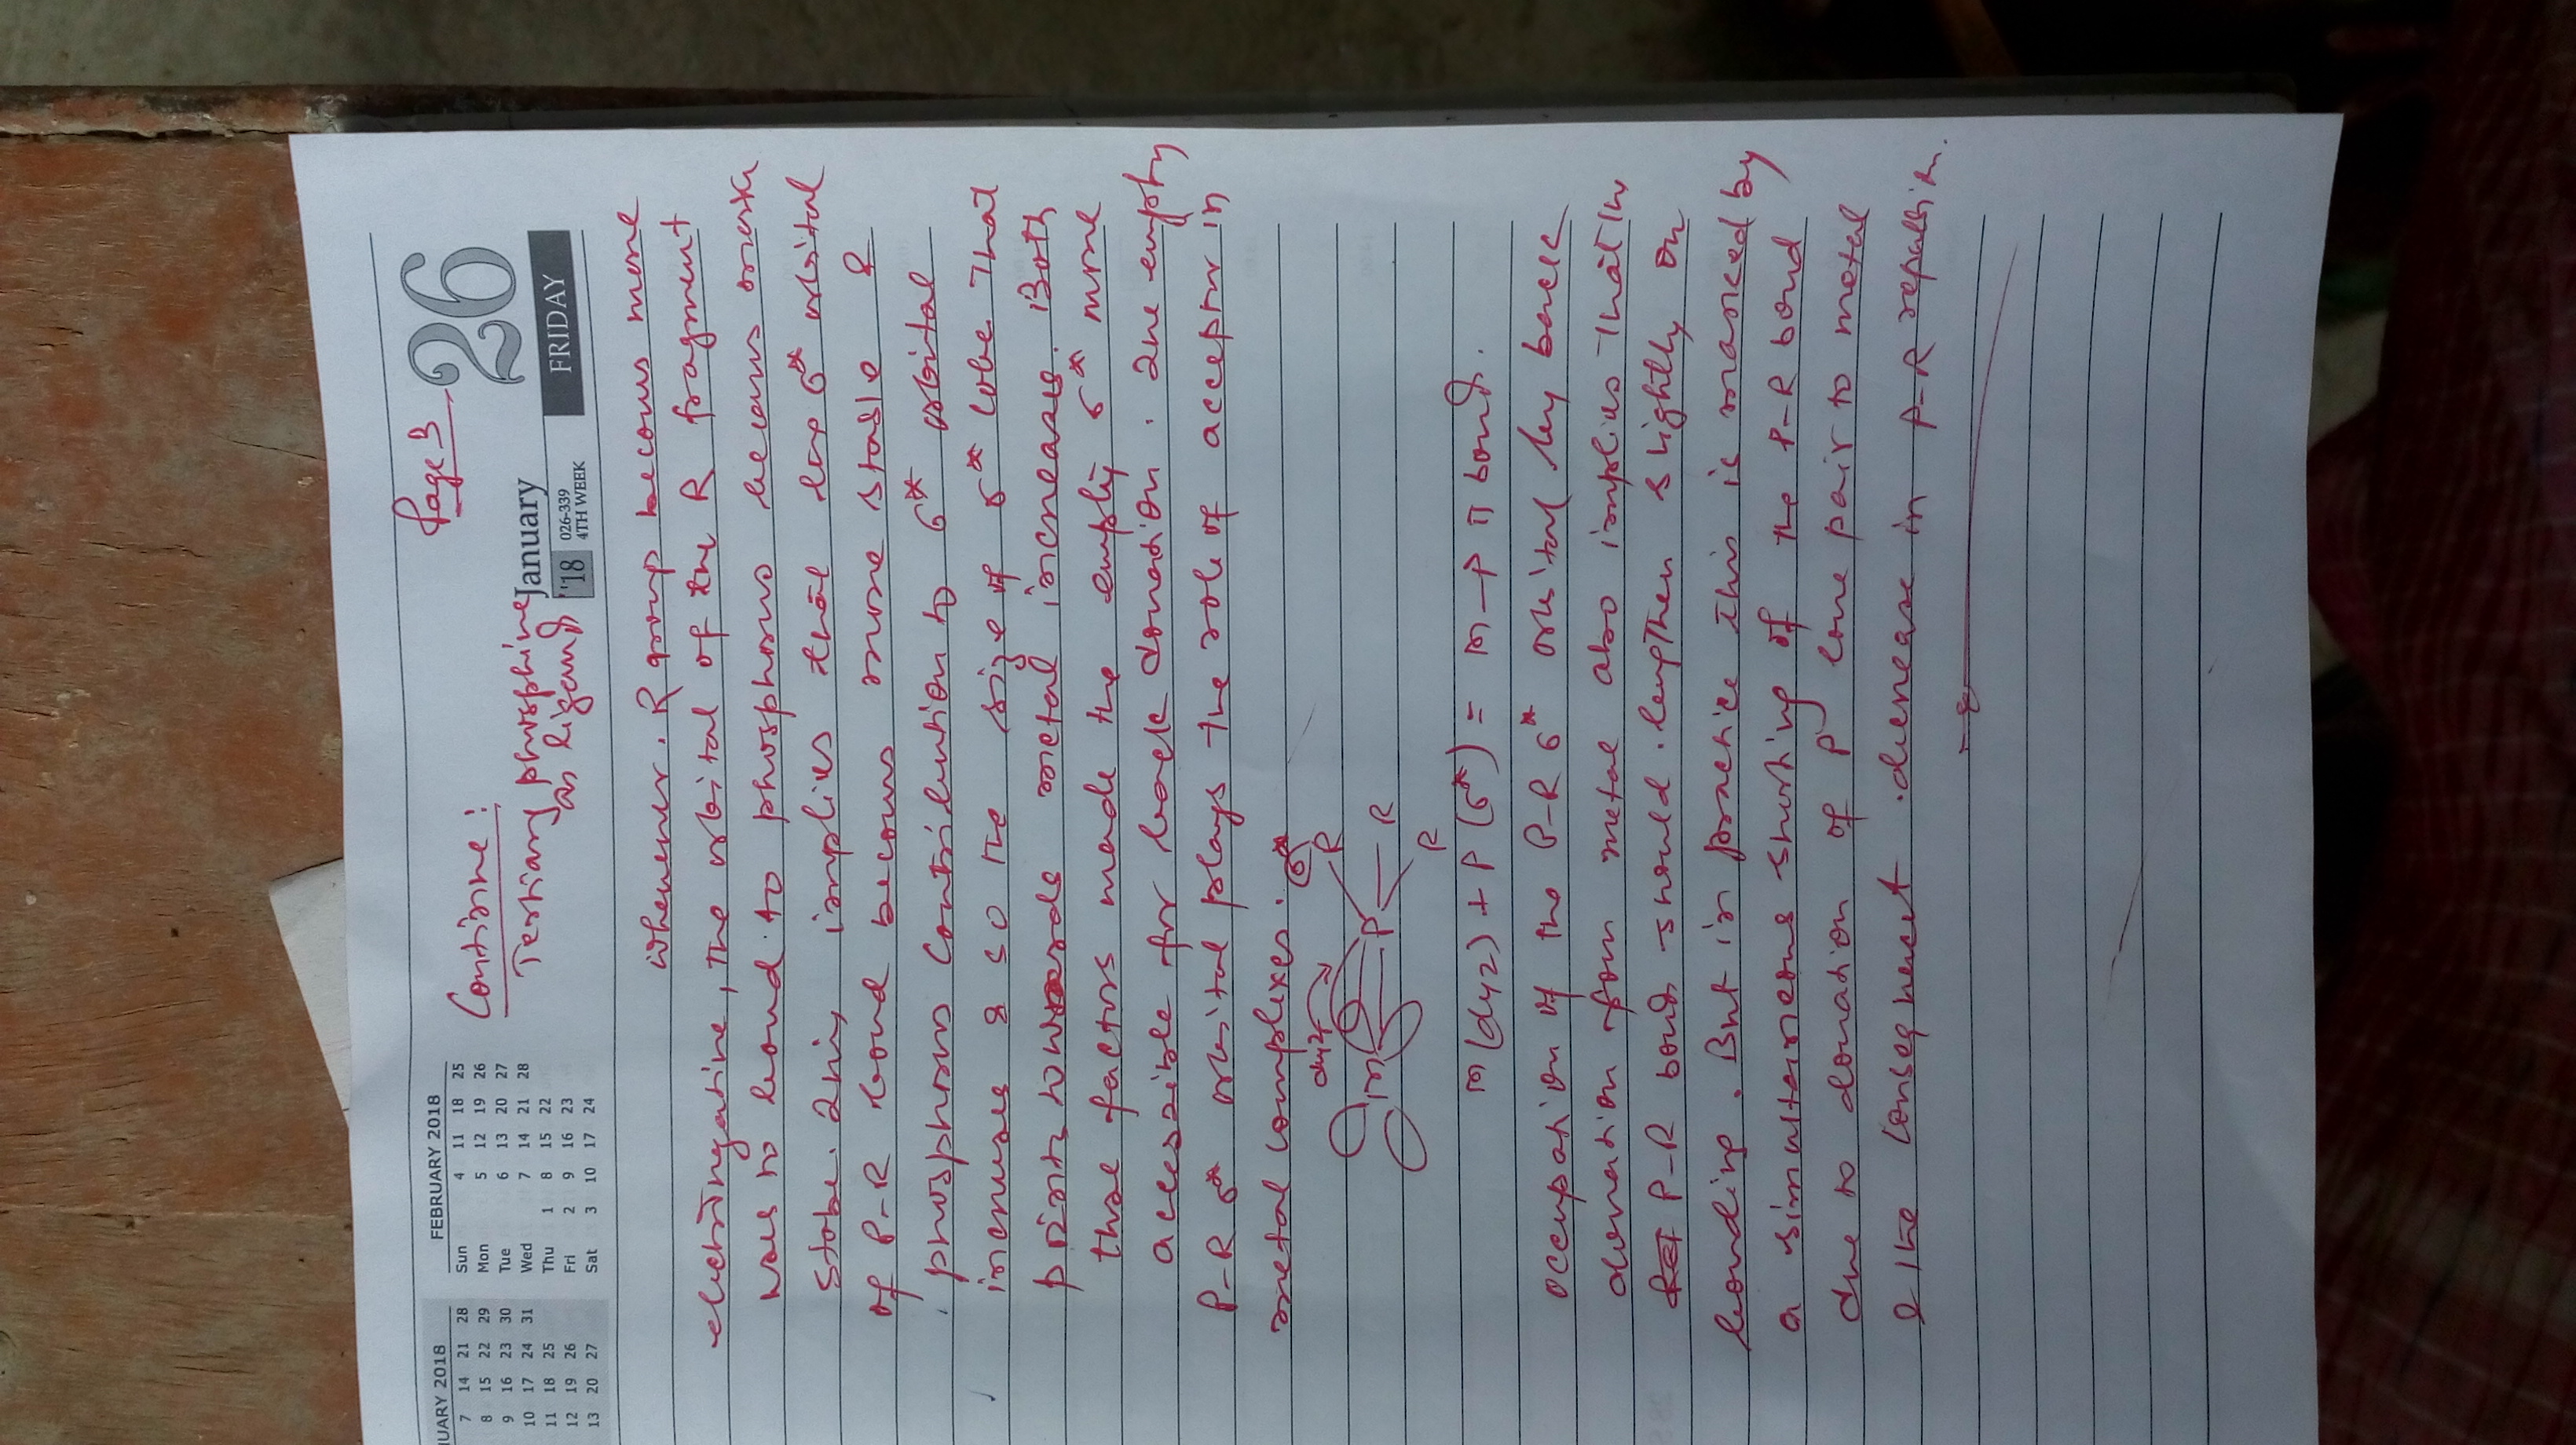 Page 3
26
FRIDAY
January
'18 026-339
4TH WEEK
FEBRUARY 2018
Sun 4 11 18 25
Mon 5 12 19 26
Tue 6 13 20 27
Wed 7 14 21 28
Thu 1 8 15 22
Fri 2 9 16 23
Sat 3 10 17 24
UARY 2018
7 14 21 28
8 15 22 29
9 16 23 30
10 17 24 31
11 18 25
12 19 26
13 20 27
Continue:
Tertiary phosphine
as ligand
whenever R group becomes more
electronegative, the orbital of the R fragment
uses to bond to phosphorus becomes more
stable. This implies that the σ* orbital
of P-R bond becomes more stable &
phosphorus contribution to σ* orbital
increases & so the size of σ* lobe that
points towards metal increases. Both
these factors made the empty σ* more
accessible for back donation. The empty
P-R σ* orbital plays the role of acceptor in
metal complexes.
dyz σ*
M P R
R
R
M(dyz) + P(σ*) = M-P π bond.
occupation of the P-R σ* orbital by back
donation from metal also implies that the
P-R bonds should lengthen slightly on
bonding. But in practice this is by
a simultaneous shorting of the P-R bond
due to donation of P lone pair to metal
& the consequent decrease in P-R repulsion.